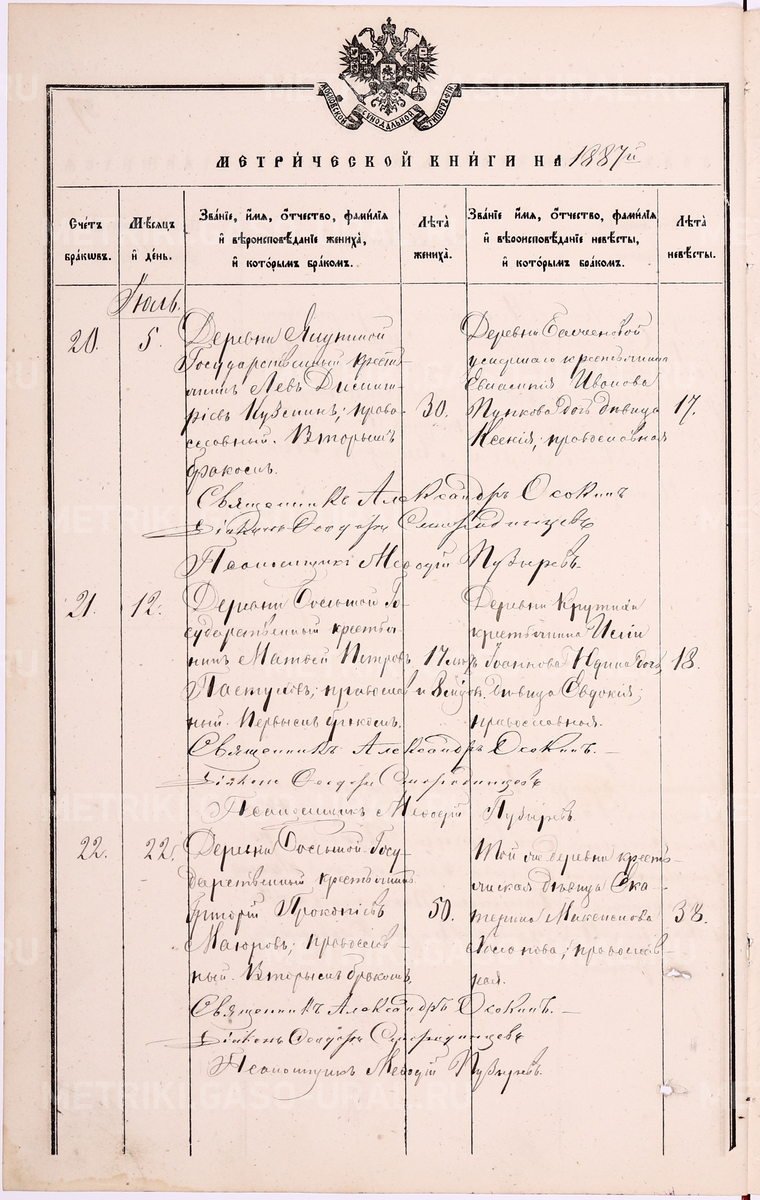 МОСКОВСКОЙ СѴНОДАЛЬНОЙ ТИПОГРАФІИ
МЕТРИ́ЧЕСКОЙ КНИ́ГИ НА 1887й
Сче́тъ бра́кѡвъ.
Мѣ́сяцъ и҆ де́нь.
Зва́нїе, и҆́мя, ѻ҆́тчество, фами́лїя и҆ вѣроисповѣ́данїе жениха̀, и҆ кото́рымъ бра́комъ.
Лѣ́та жениха̀.
Зва́нїе и҆́мя, ѻ҆́тчество, фами́лїя и҆ вѣроисповѣ́данїе невѣ́сты, и҆ кото́рымъ бра́комъ.
Лѣ́та невѣ́сты.
Іюль.
20.
5.
Деревни
Государственный кресть-
янинъ Левъ Димит-
ріевъ Кузьминъ; право-
славный. Вторымъ
бракомъ.
30.
Деревни
умершаго крестьянина
Иванова
Пункова дочь дѣвица
Ксенія, православная
17.
Священникъ Александръ Осокинъ
Діаконъ Ѳеодоръ Смородинцевъ
Псаломщикъ Меѳодій Пузыревъ.
21.
12.
Деревни Большой Го-
сударственный крестья-
нинъ Матѳей Петровъ
Пастуховъ; православ-
ный. Первымъ бракомъ.
17 лѣтъ
и
Деревни Крутихи
крестьянина Иліи
Іоаннова Юдина дочь,
дѣвица Евдокія;
православная.
18.
Священникъ Александръ Осокинъ.
Діаконъ Ѳеодоръ Смородинцевъ
Псаломщикъ Меѳодій Пузыревъ
22.
22.
Деревни Большой Госу-
дарственный крестьянинъ
Григорій Прокопіевъ
Маюровъ; православ-
ный. Вторымъ бракомъ.
50.
Той же деревни кресть-
янская дѣвица Ека-
терина Максимова
православ-
ная.
38.
Священникъ Александръ Осокинъ.
Діаконъ Ѳеодоръ Смородинцевъ
Псаломщикъ Меѳодій Пузыревъ.